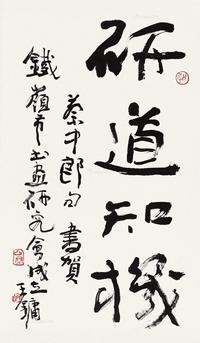 研道知機
蔡中郎句 書賀
鐵嶺市书画研究會成立
王鏞